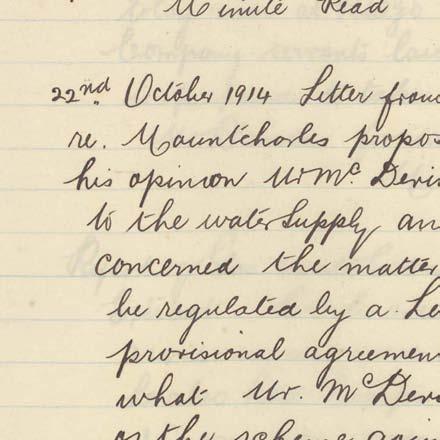 Minute Read
22nd October 1914 Letter from
re. Mountcharles propos
his opinion Mr Mc Devi
to the water supply an
concerned the matter
be regulated by a Le
provisional agreemen
what Mr. McDev
or the scheme